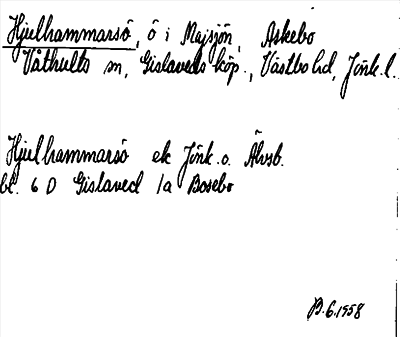 Hjulhammarsö, ö i Majsjön, Askebo
Våthults sn, Gislaveds köp., Västbo hd, Jönk. l.
Hjulhammarsö ek Jönk. o. Älvsb.
bl. 6 D Gislaved 1a Bosebo
B. 6. 1958